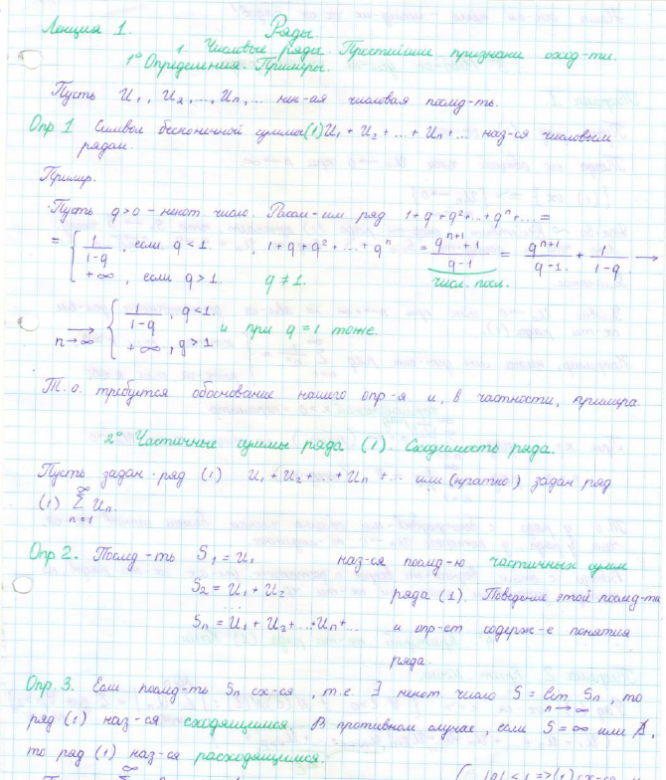 Лекция 1. Ряды.
1. Числовые ряды. Простейшие признаки сход-ти.
1° Определения. Примеры.
Пусть U₁, U₂, ..., Uₙ, ... нек-ая числовая послед-ть.
Опр 1. Символ бесконечной суммы (1) U₁ + U₂ + ... + Uₙ + ... наз-ся числовым
рядом.
Пример.
Пусть q > 0 – некот число. Рассм-им ряд 1 + q + q² + ... + qⁿ + ... =
= { 1/(1-q), если q < 1. , 1 + q + q² + ... + qⁿ = (qⁿ⁺¹ + 1)/(q-1) = qⁿ⁺¹/(q-1) + 1/(1-q) →
+∞, если q > 1. q ≠ 1. числ. посл.
→ n→∞ { 1/(1-q), q < 1
+∞, q > 1 и при q = 1 тоже.
Т.о. требуется обоснование нашего опр-я и, в частности, примера.
2° Частичные суммы ряда (1). Сходимость ряда.
Пусть задан ряд (1) U₁ + U₂ + ... + Uₙ + ... или (кратко) задан ряд
(1) ∞ Σ n=1 Uₙ.
Опр 2. Послед-ть S₁ = U₁ наз-ся послед-ю частичных сумм
S₂ = U₁ + U₂ ряда (1). Поведение этой послед-ти
...
Sₙ = U₁ + U₂ + ... + Uₙ + ... и опр-ет содерж-е понятия
ряда.
Опр. 3. Если послед-ть Sₙ сх-ся, т.е. ∃ некот число S = lim n→∞ Sₙ, то
ряд (1) наз-ся сходящимся. В противном случае, если S = ∞ или ∄,
то ряд (1) наз-ся расходящимся.